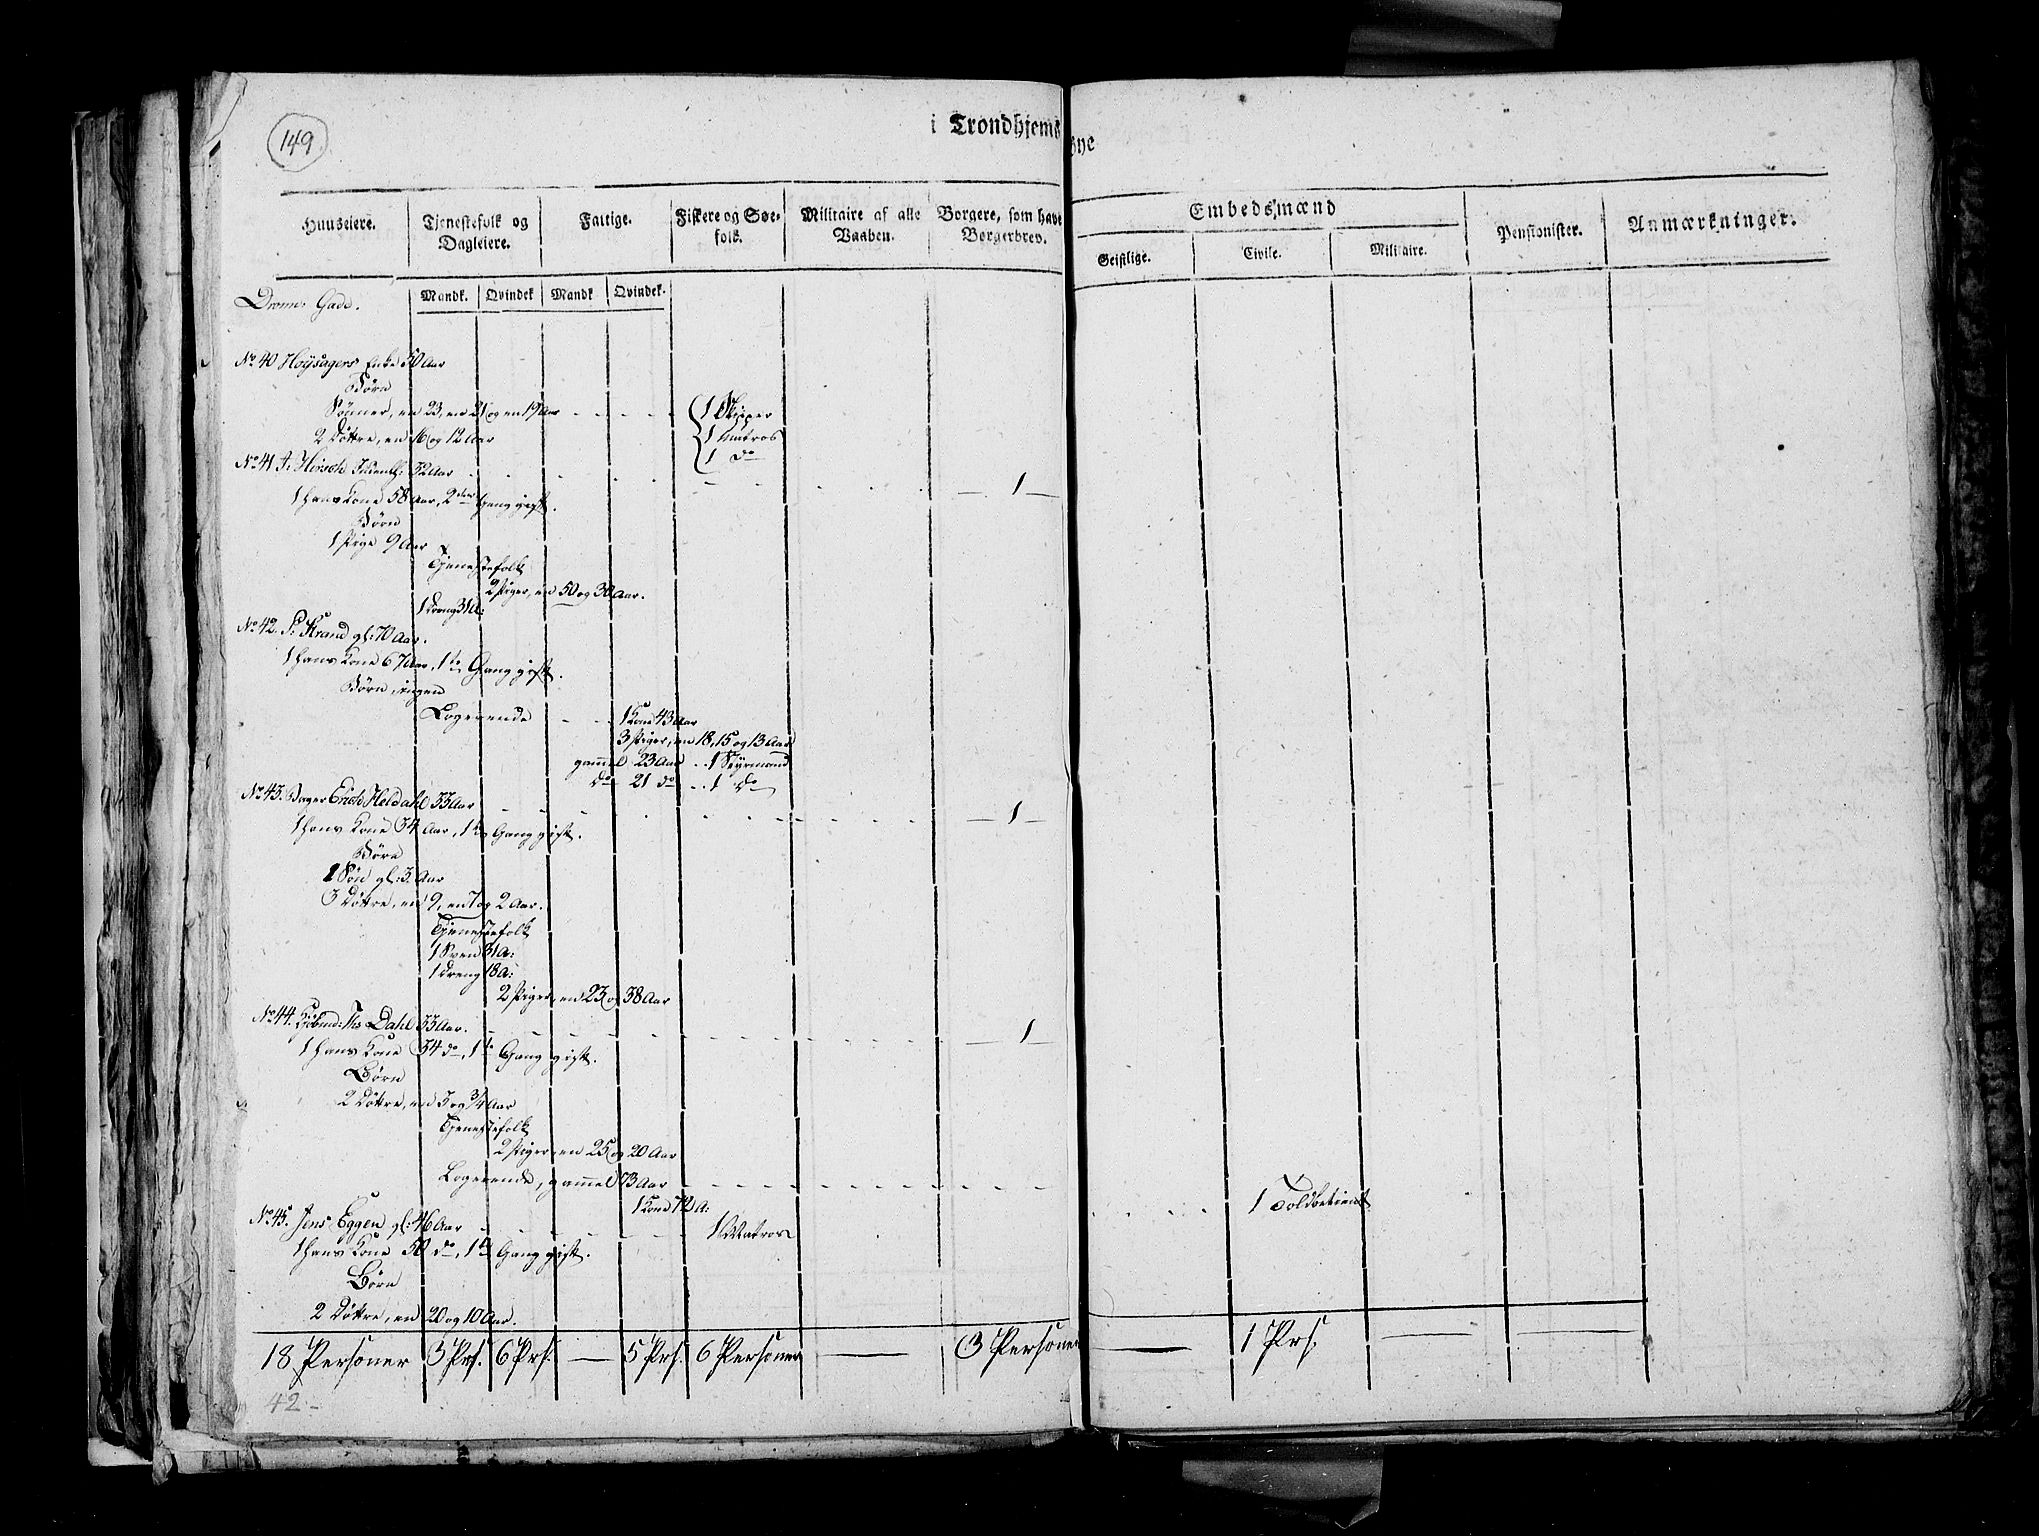 149
i Trondhjems Bye
Huuseiere. Tjenestefolk og Dagleiere. Fattige. Fiskere og Søefolk. Militaire af alle Vaaben. Borgere, som have Borgerbrev. Embedsmænd Pensionister. Anmærkninger.
Geistlige. Civile. Militaire.
Mandk. Qvindek Mandk Qvindek.
Dronn: Gade.
No 40 Høysagers Enke 50 Aar
Børn
Sønner, en 23, en 21 og en 19 Aar - - - - - 1 Skipper
1 Matros
2 Døttre, en 16 og 12 Aar
1 do
No 41 J: Hirsch 52 Aar - - - - 1 -
1 hans Kone 58 Aar, 2den Gang gift.
Børn
1 Pige 9 Aar
Tjenestefolk
2 Piger, en 50 og 30 Aar.
1 Dreng 31 A:
No 42. P: Strand gl: 70 Aar.
1 hans Kone 67 Aar, 1te Gang gift.
Børn, ingen
Logerende - - - 1 Kone 43 Aar
3 Piger, en 18, 15 og 13 Aar
gammel 23 Aar . . 1 Styrmand
do 21 do . . 1 do
No 43. Bager Erich Heldahl 33 Aar - - - - 1 -
1 hans Kone 34 Aar, 1te Gang gift.
Børn
1 Søn gl: 3 Aar
3 Døttre, en 9, en 7 og 2 Aar.
Tjenestefolk
1 Svend 31 A:
1 Dreng 18 A:
2 Piger, en 23 og 38 Aar
No 44. Kjøbmd: Ths Dahl 33 Aar. - - - - 1 -
1 hans Kone 34 do, 1te Gang gift.
Børn
2 Døttre, en 5 og 3/4 Aar
Tjenestefolk
2 Piger, en 25 og 20 Aar
Logerende, gammel 73 Aar - - - - 1 Toldbetient
1 Kone 72 A:
No 45. Jens Eggen gl: 46 Aar - - - - 1 Matros
1 hans Kone 50 do, 1te Gang gift.
Børn
2 Døttre, en 20 og 10 Aar.
18 Personer 3 Prs. 6 Prs. — 5 Prs. 6 Personer — 3 Personer — 1 Prs. — —
42 -